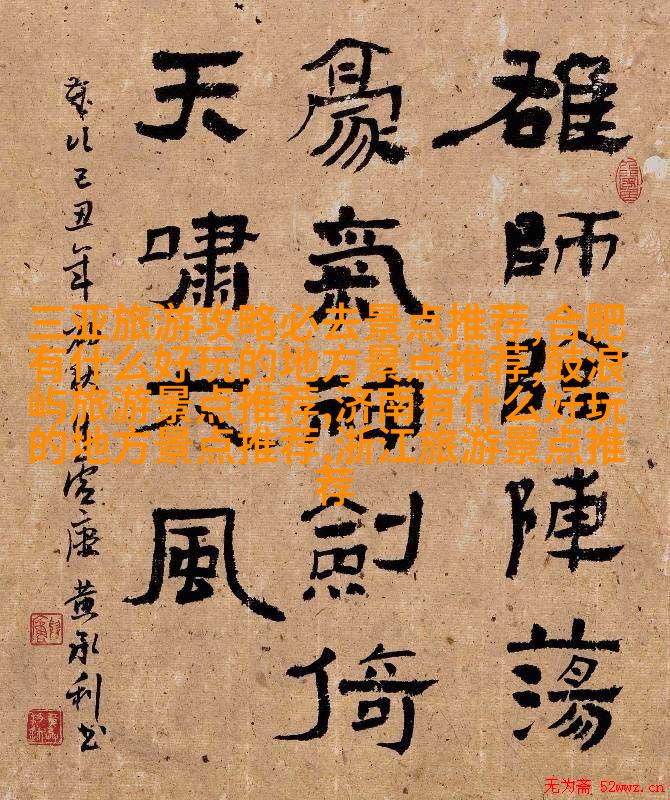 雄師陣蕩
豪氣劍倚
天嘯大風
歲次己丑年秋月
黄承利书
三亚旅游攻略必去景点推荐,合肥
有什么好玩的地方景点推荐,鼓浪
屿旅游景点推荐,济南有什么好玩
的地方景点推荐,浙江旅游景点推
荐
无为斋 52wwz.cn